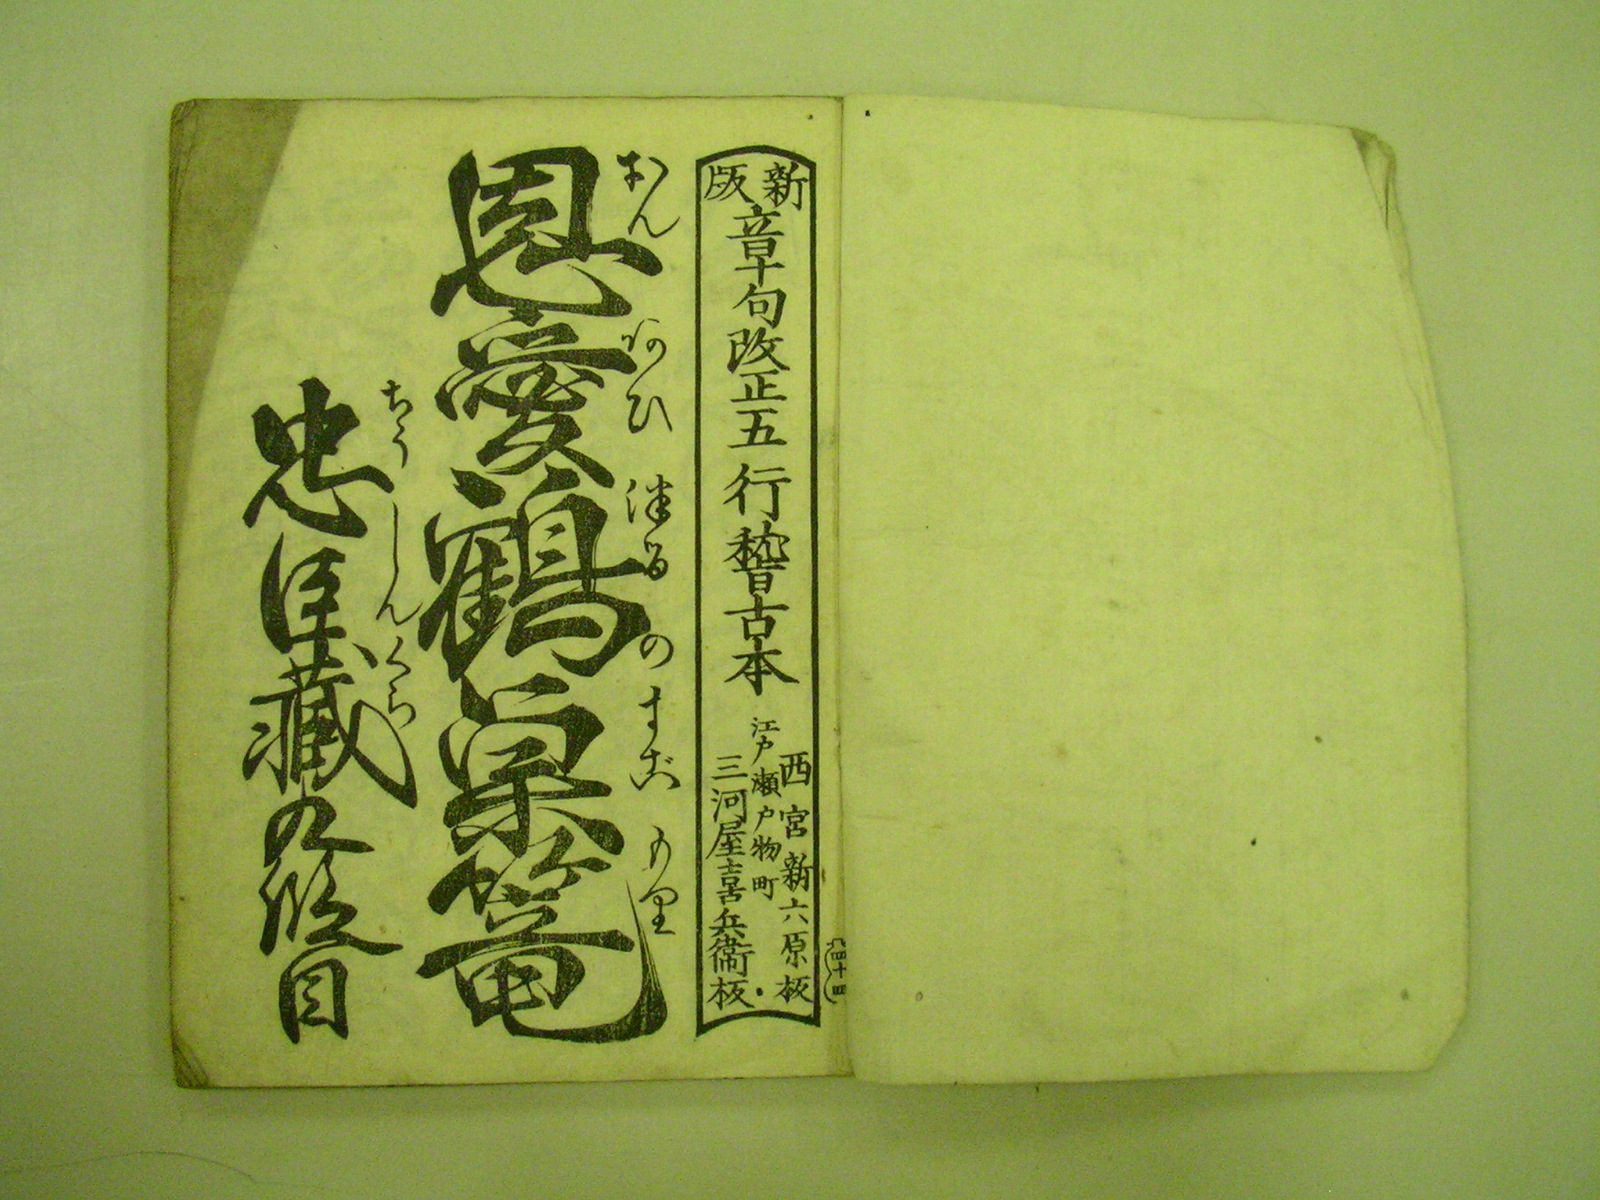 新版
章句改正五行稽古本
西宮新六原板
江戸瀬戸物町
三河屋喜兵衛板
おんあひつるのすごもり
恩愛鶴巣篭
ちうしんくら
忠臣蔵九段目
四十四